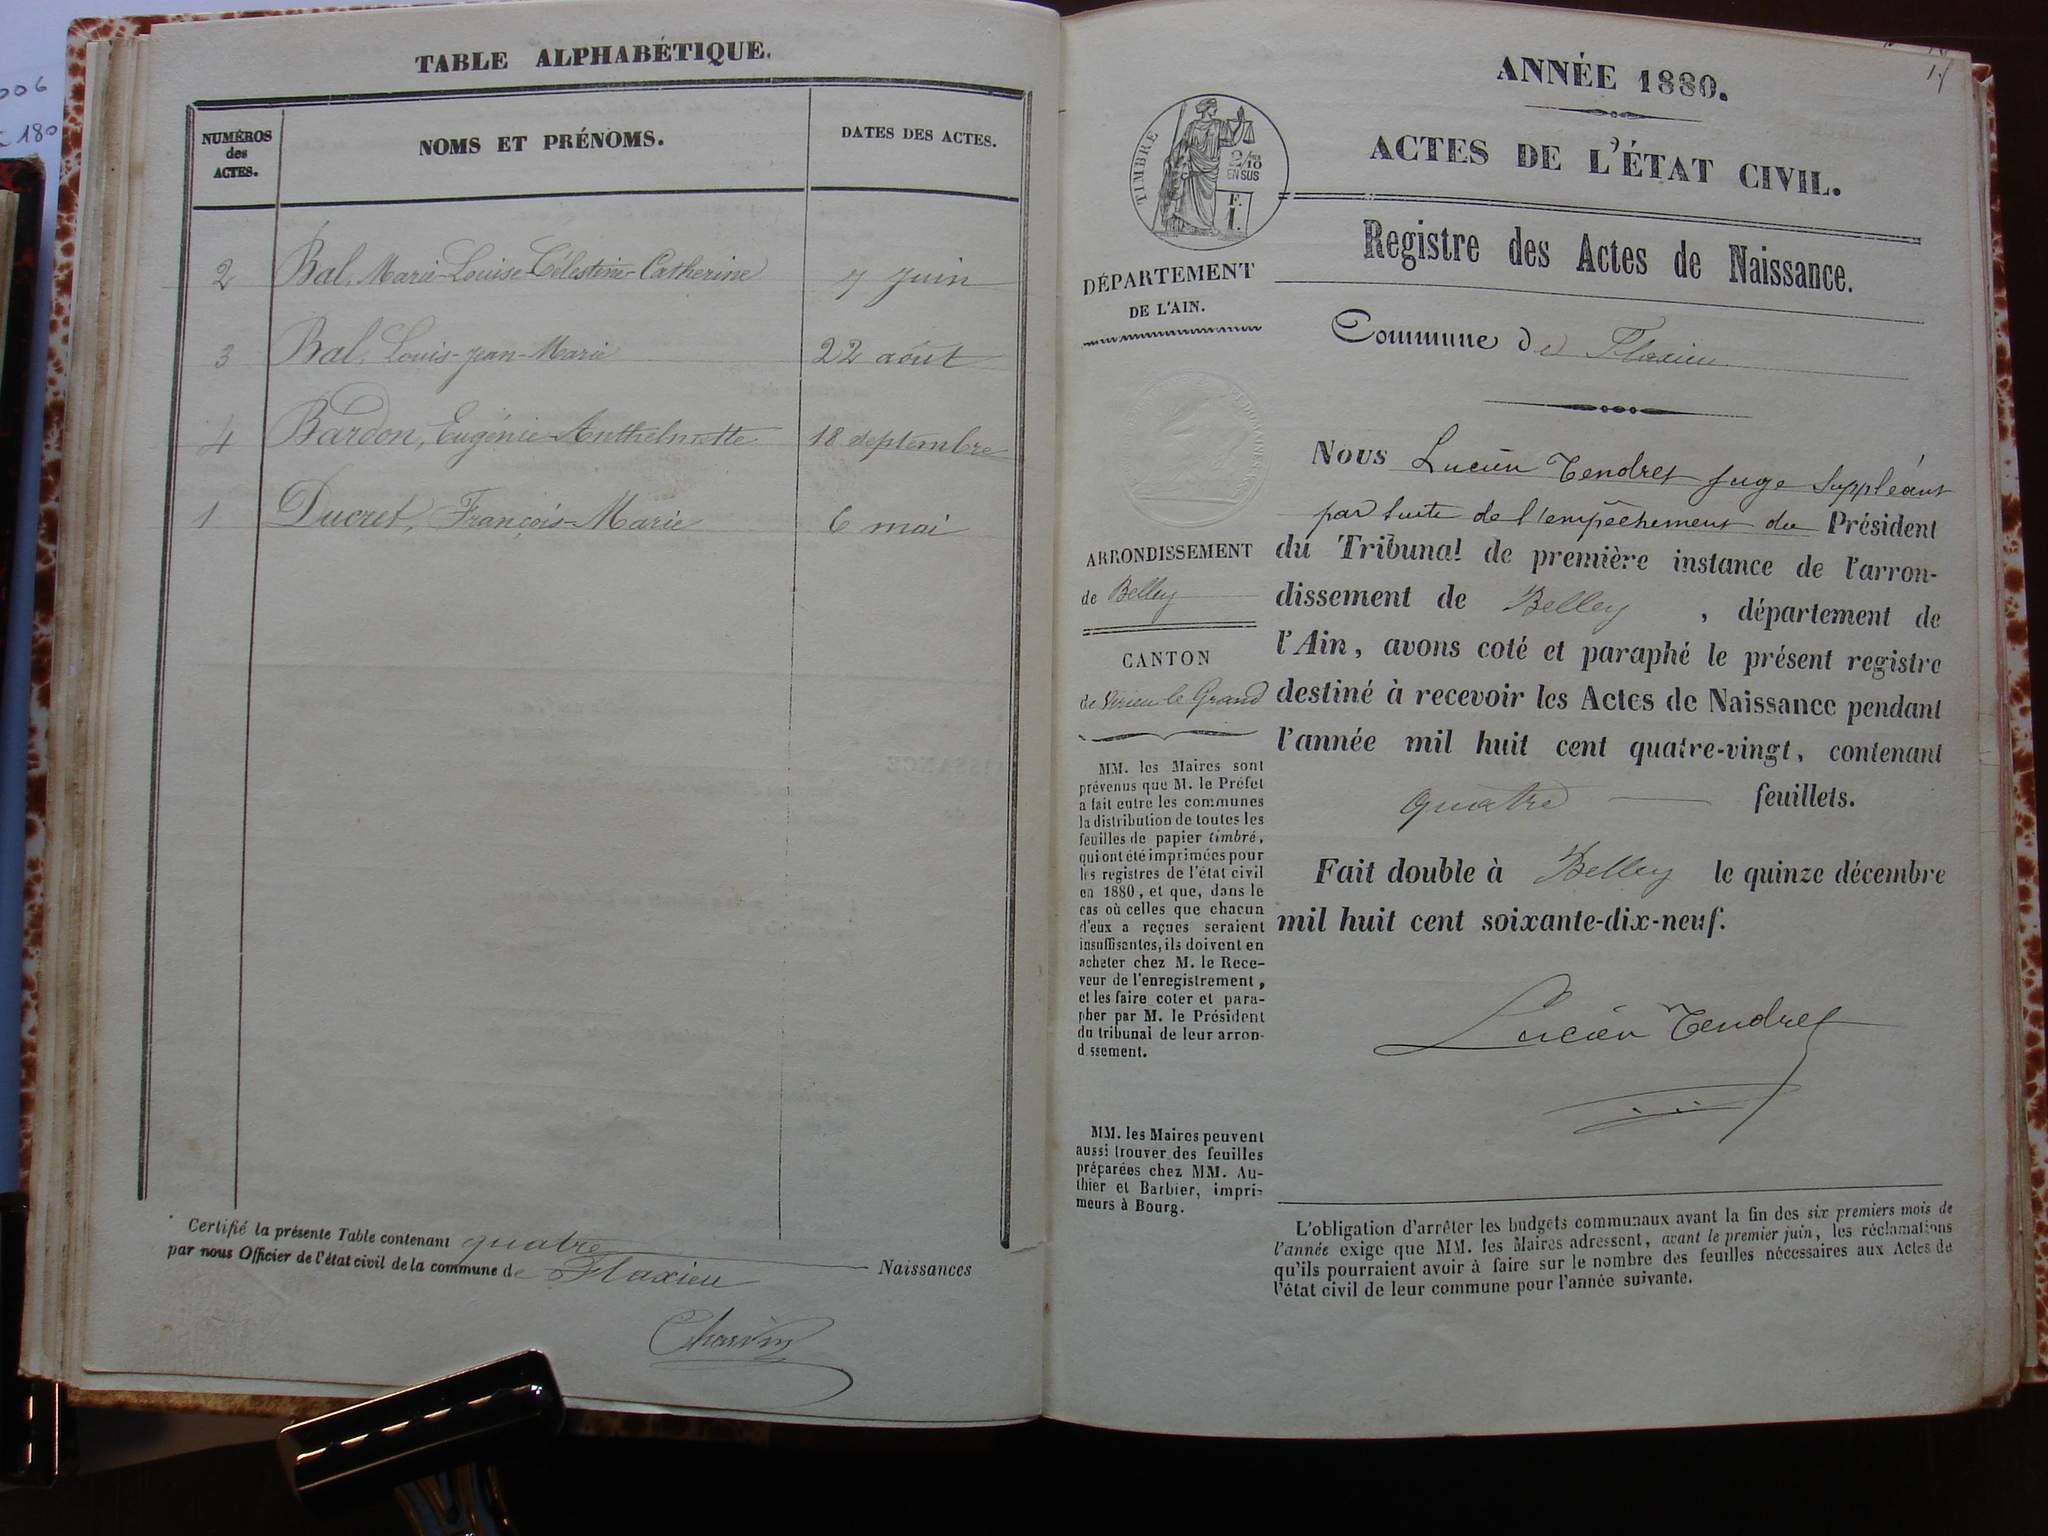 006
180
TABLE ALPHABÉTIQUE.
NUMÉROS
des
ACTES.
NOMS ET PRÉNOMS.
DATES DES ACTES.
2 Bal, Marie-Louise-Célestine-Catherine 7 juin
3 Bal, Louis-Jean-Marie 22 août
4 Bardon, Eugénie-Anthelmette 18 septembre
1 Ducret, François-Marie 6 mai
Certifié la présente Table contenant quatre Naissances
par nous Officier de l'état civil de la commune de Flaxieu
Charvin
ANNÉE 1880.
ACTES DE L'ÉTAT CIVIL.
TIMBRE
2/10
EN SUS
F.
1.
Registre des Actes de Naissance.
DÉPARTEMENT
DE L'AIN.
Commune de Flaxieu
ARRONDISSEMENT
de Belley
CANTON
de Virieu-le-Grand
MM. les Maires sont
prévenus que M. le Préfet
a fait entre les communes
la distribution de toutes les
feuilles de papier timbré,
qui ont été imprimées pour
les registres de l'état civil
en 1880, et que, dans le
cas où celles que chacun
d'eux a reçues seraient
insuffisantes, ils doivent en
acheter chez M. le Rece-
veur de l'enregistrement,
et les faire coter et para-
pher par M. le Président
du tribunal de leur arron-
d ssement.
MM. les Maires peuvent
aussi trouver des feuilles
préparées chez MM. Au-
thier et Barbier, impri-
meurs à Bourg.
Nous Lucien Tendret juge Suppléant
par suite de l'empêchement du Président
du Tribunal de première instance de l'arron-
dissement de Belley , département de
l'Ain, avons coté et paraphé le présent registre
destiné à recevoir les Actes de Naissance pendant
l'année mil huit cent quatre-vingt, contenant
quatre feuillets.
Fait double à Belley le quinze décembre
mil huit cent soixante-dix-neuf.
Lucien Tendret
L'obligation d'arrêter les budgets communaux avant la fin des six premiers mois de
l'année exige que MM. les Maires adressent, avant le premier juin, les réclamations
qu'ils pourraient avoir à faire sur le nombre des feuilles nécessaires aux Actes de
l'état civil de leur commune pour l'année suivante.